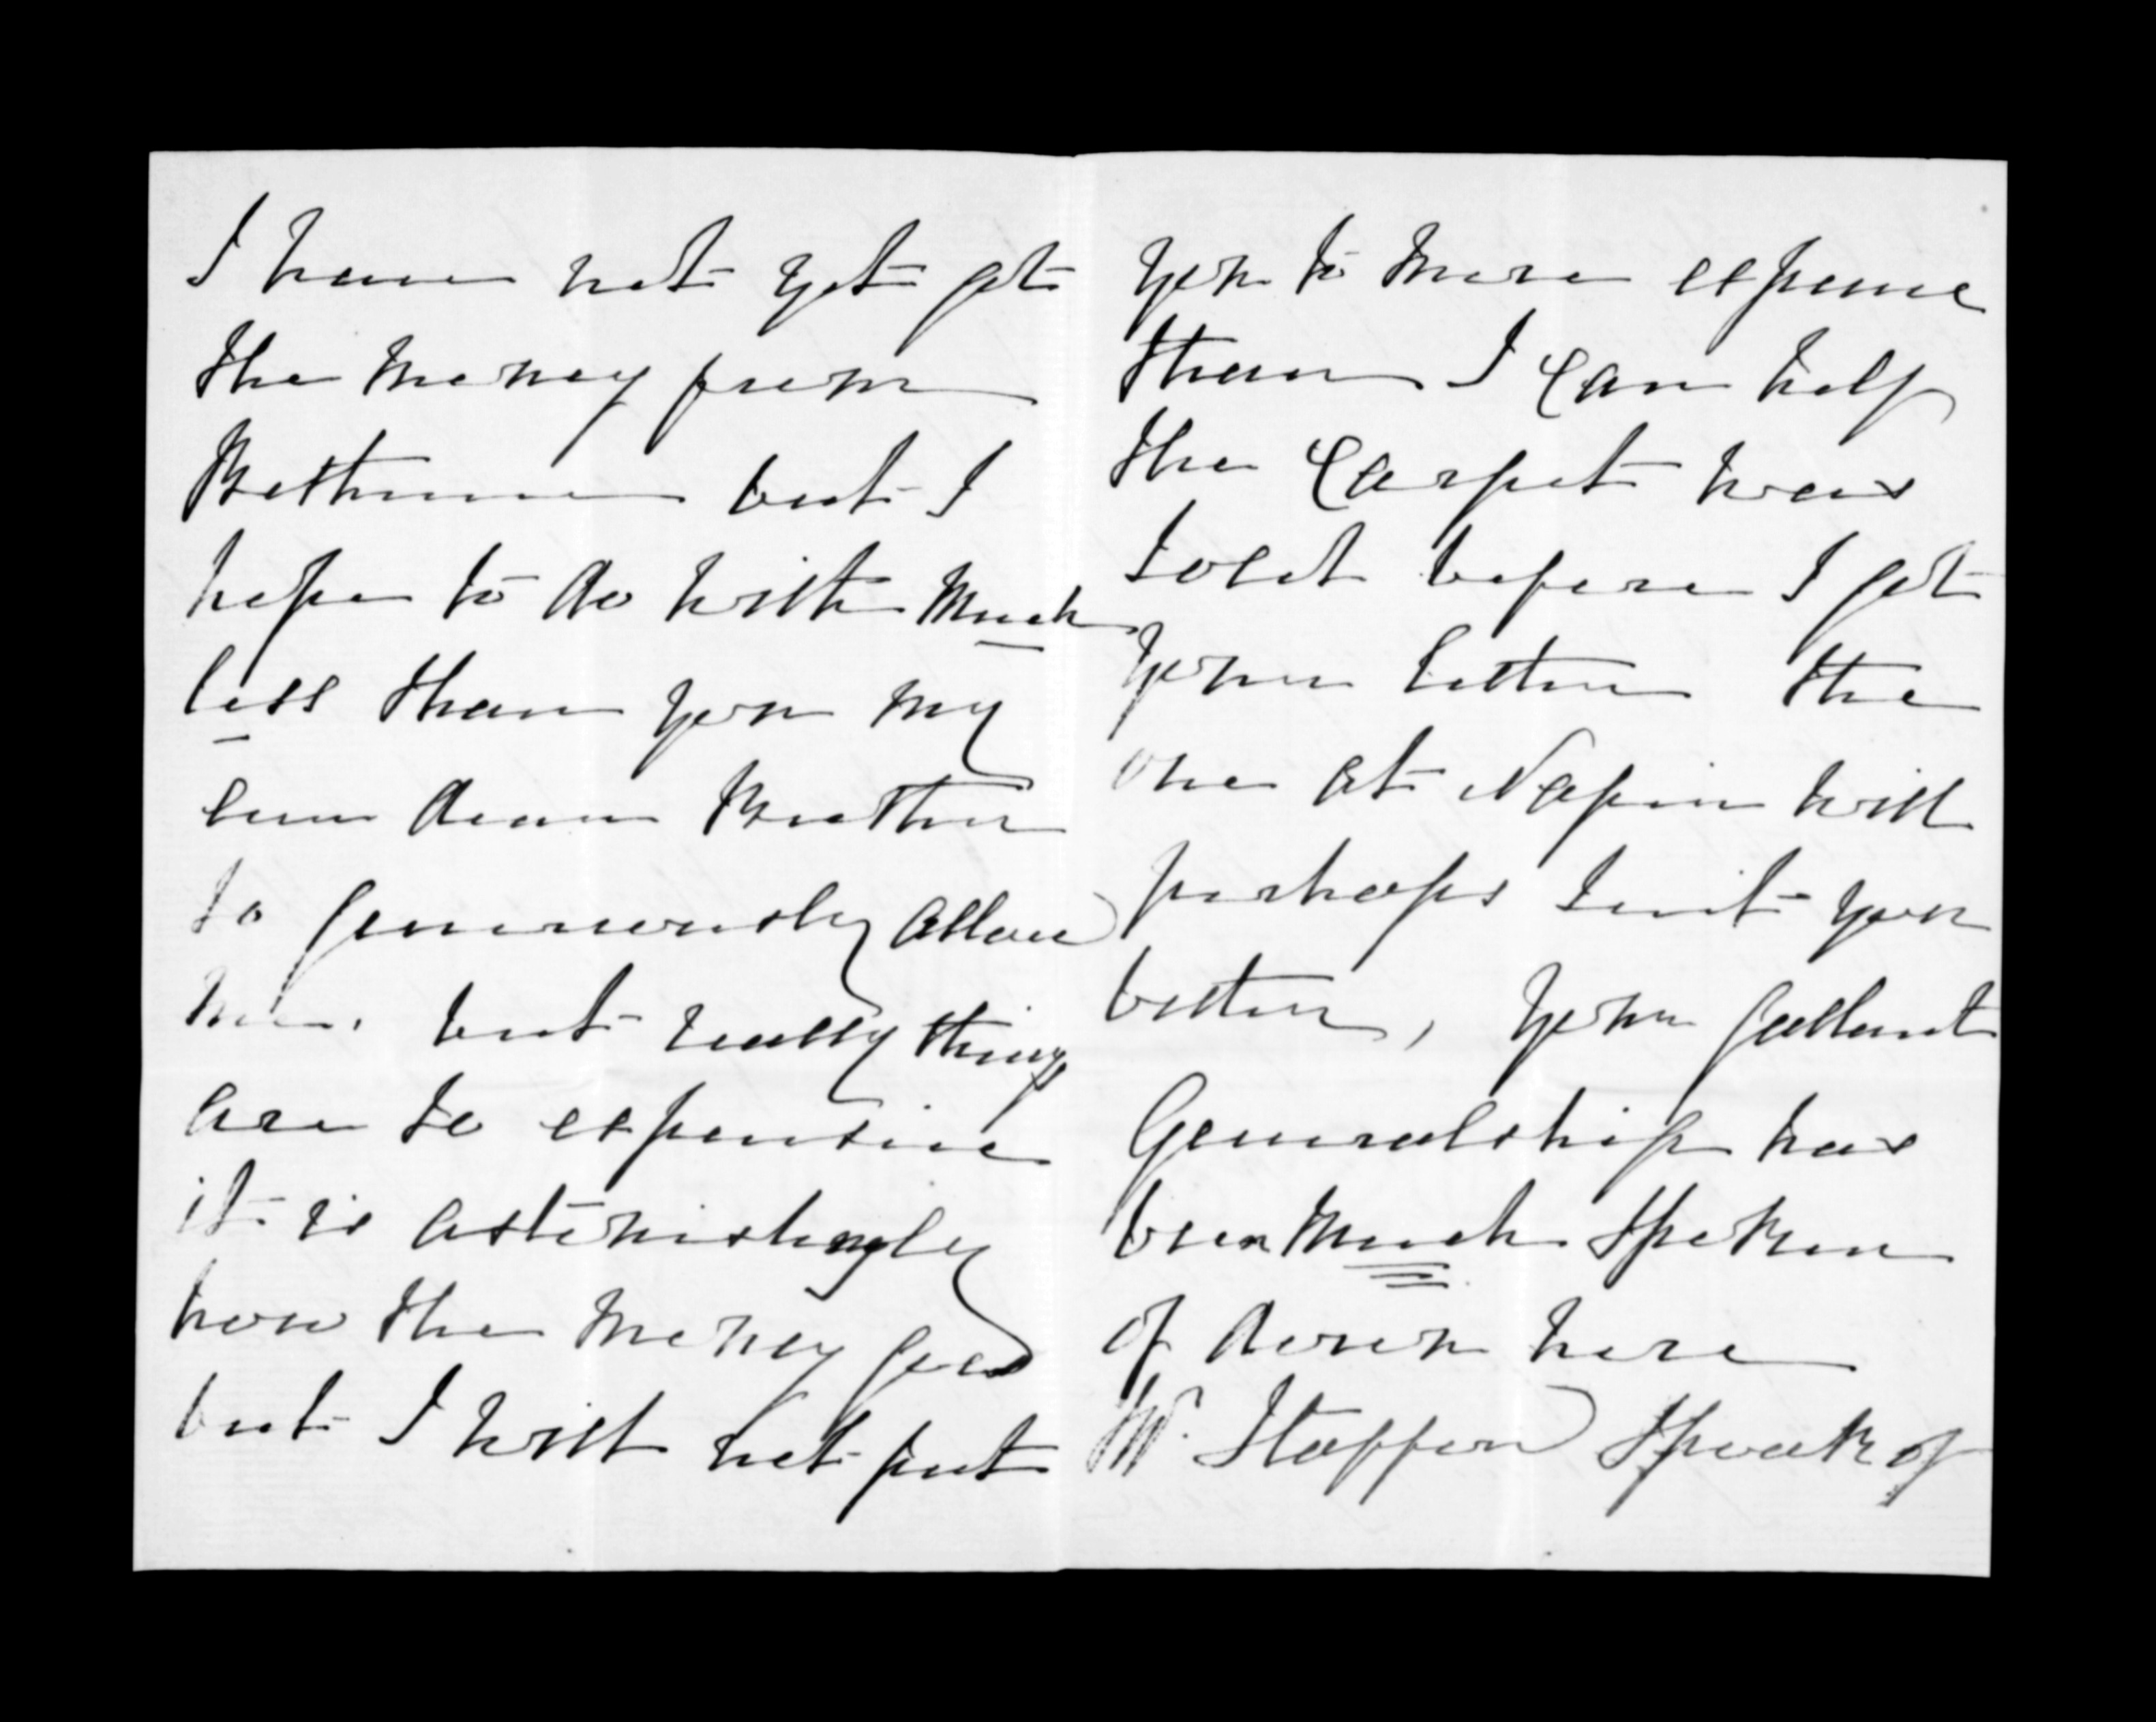 I have not yet got
the money from
Bethune but I
hope to do with much
less than you my
own dear Brother
so generously allow
me. but really things
are so expensive
it is astonishingly
how the money goes
but I will not put
you to more expense
than I can help
the Carpet was
sold before I got
your letter the
one at Napier will
perhaps suit you
better, your gallant
Generalship has
been much spoken
of down here
Mr. Stafford Speak of